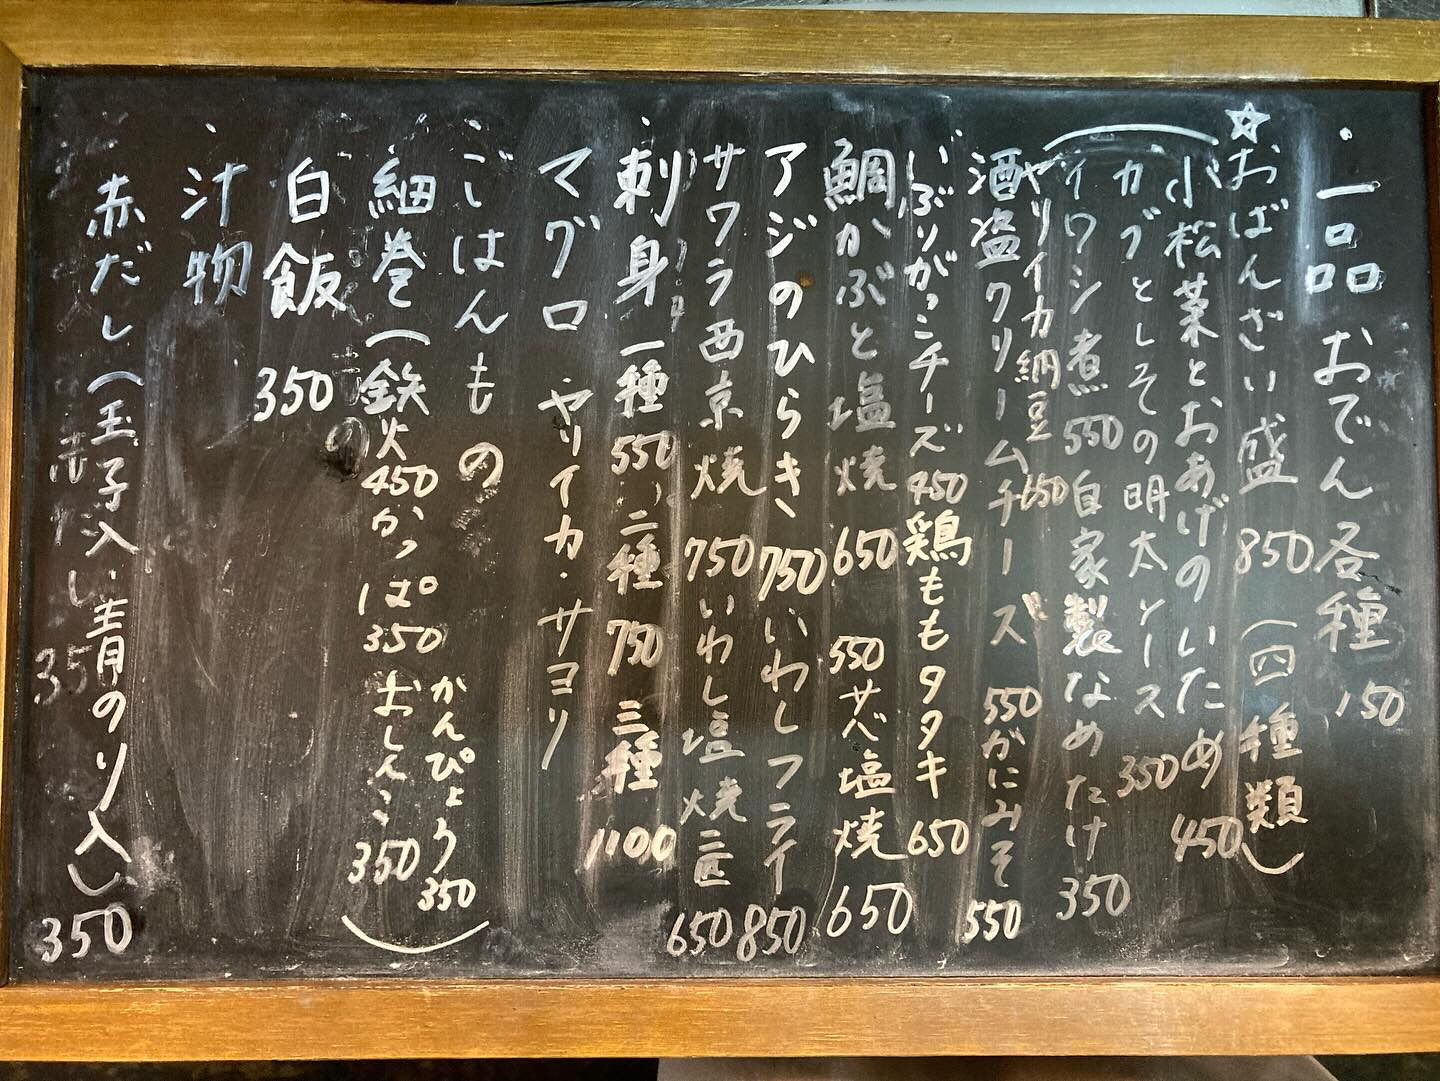 ・一品 おでん各種 150
☆おばんざい盛 850 (四種類)
小松菜とおあげのいため 450
カブとしその明太ソース 350
イワシ煮 550 自家製なめたけ 350
ヤリイカ納豆 650
酒盗クリームチーズ 550 がにみそ 550
いぶりがっこチーズ 450 鶏ももタタキ 650
鯛かぶと塩焼 650 550 サバ塩焼 650
アジのひらき 750 いわしフライ 850
サワラ西京焼 750 いわし塩焼二匹 650
・刺身 一種 550 二種 750 三種 1100
マグロ ヤリイカ・サヨリ
・ごはんもの
細巻(鉄火 450 かっぱ 350 おしんこ 350
かんぴょう 350)
白飯 350
・汁物
赤だし(玉子入し、青のり入し) 350